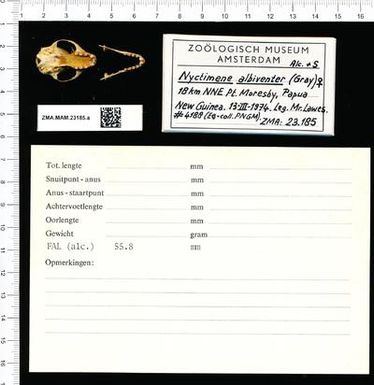 1 2 3 4 5 6 7 8 9 10 11 12 13 14 15 16
ZOÖLOGISCH MUSEUM
AMSTERDAM
Alc. + S.
Nyctimene albiventer (Gray) ♀
18 km NNE Pt. Moresby, Papua
New Guinea. 13-III-1974. Leg. Mr. Lawes.
#4188 (Eg-coll. P.N.G.M)
ZMA: 23.185
ZMA.MAM.23185.a
Tot. lengte mm
Snuitpunt - anus mm
Anus - staartpunt mm
Achtervoetlengte mm
Oorlengte mm
Gewicht gram
FAL (alc.) 55.8 mm
Opmerkingen: